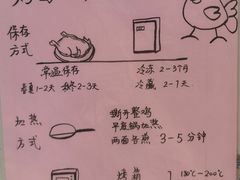 保存
方式
常温保存
春夏1-2天 秋冬2-3天
冷冻 2-3个月
冷藏 2-7天
加热
方式
撕开整鸡
平底锅加热
两面各煎 3-5分钟
烤箱
180℃-200℃